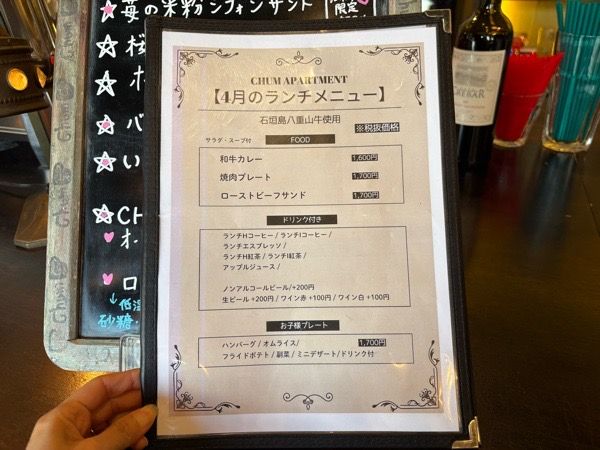 苺の米粉シフォンサンド
限定
桜
ホ
バ
い
CH
ホ
ロ
↓低温
砂糖
CHUM APARTMENT
【4月のランチメニュー】
石垣島八重山牛使用
※税抜価格
サラダ・スープ付
FOOD
和牛カレー 1,600円
焼肉プレート 1,700円
ローストビーフサンド 1,700円
ドリンク付き
ランチHコーヒー / ランチIコーヒー /
ランチエスプレッソ /
ランチH紅茶 / ランチI紅茶 /
アップルジュース /
ノンアルコールビール/+200円
生ビール +200円 / ワイン赤 +100円 / ワイン白 +100円
お子様プレート
ハンバーグ / オムライス/ 1,700円
フライドポテト / 副菜 / ミニデザート/ドリンク付